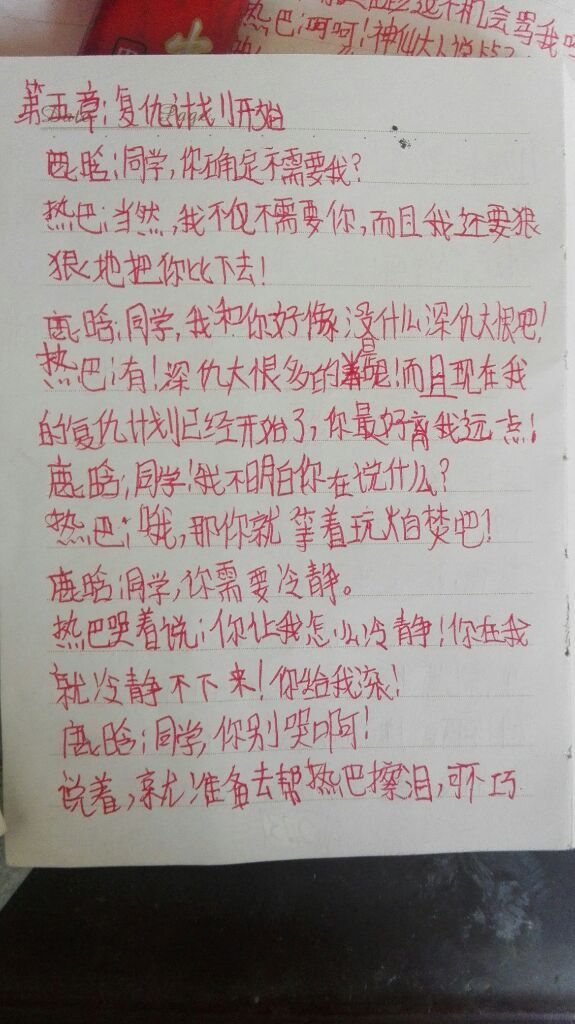 机会骂我吗
热巴:呵呵!神仙大人说
第五章:复仇计划开始
鹿晗:同学,你确定不需要我?
热巴:当然,我不仅不需要你,而且我还要狠
狠地把你比下去!
鹿晗:同学,我和你好像没什么深仇大恨吧!
热巴:有!深仇大恨多的是呢!而且现在我
的复仇计划已经开始了,你最好离我远一点!
鹿晗:同学!我不明白你在说什么?
热巴:哦,那你就等着玩火自焚吧!
鹿晗:同学,你需要冷静。
热巴哭着说:你让我怎么冷静!你在我
就冷静不下来!你给我滚!
鹿晗:同学,你别哭啊!
说着,就准备去帮热巴擦泪,可不巧